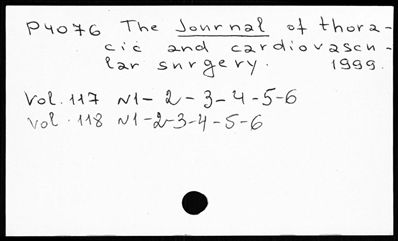 P4076 The Journal of thora-
cic and cardiovascu-
lar surgery. 1999.
Vol. 117 N1 - 2 - 3 - 4 - 5 - 6
Vol. 118 N1 - 2 - 3 - 4 - 5 - 6